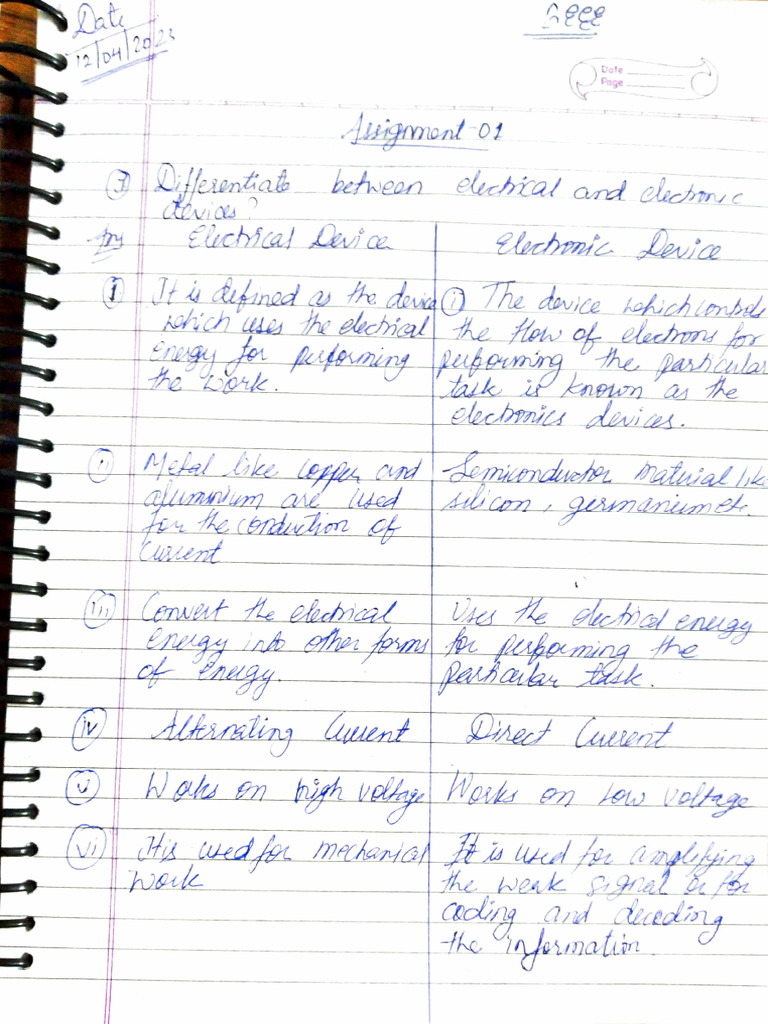 Date
12/04/2023
BEEE
Date
Page
Assignment-01
① Differentiate between electrical and electronic
devices?
Ans Electrical Device Electronic Device
① It is defined as the device
which uses the electrical
energy for performing
the work.
① The device which controls
the flow of electrons for
performing the particular
task is known as the
electronics devices.
ⅱ Metal like copper and
aluminium are used
for the conduction of
current
Semiconductor material like
silicon, germanium etc.
iii Convert the electrical
energy into other forms
of energy.
Uses the electrical energy
for performing the
particular task.
iv Alternating Current Direct Current
v Works on high voltage Works on low voltage
vi It is used for mechanical
work
It is used for amplifying
the weak signal or for
coding and decoding
the information.